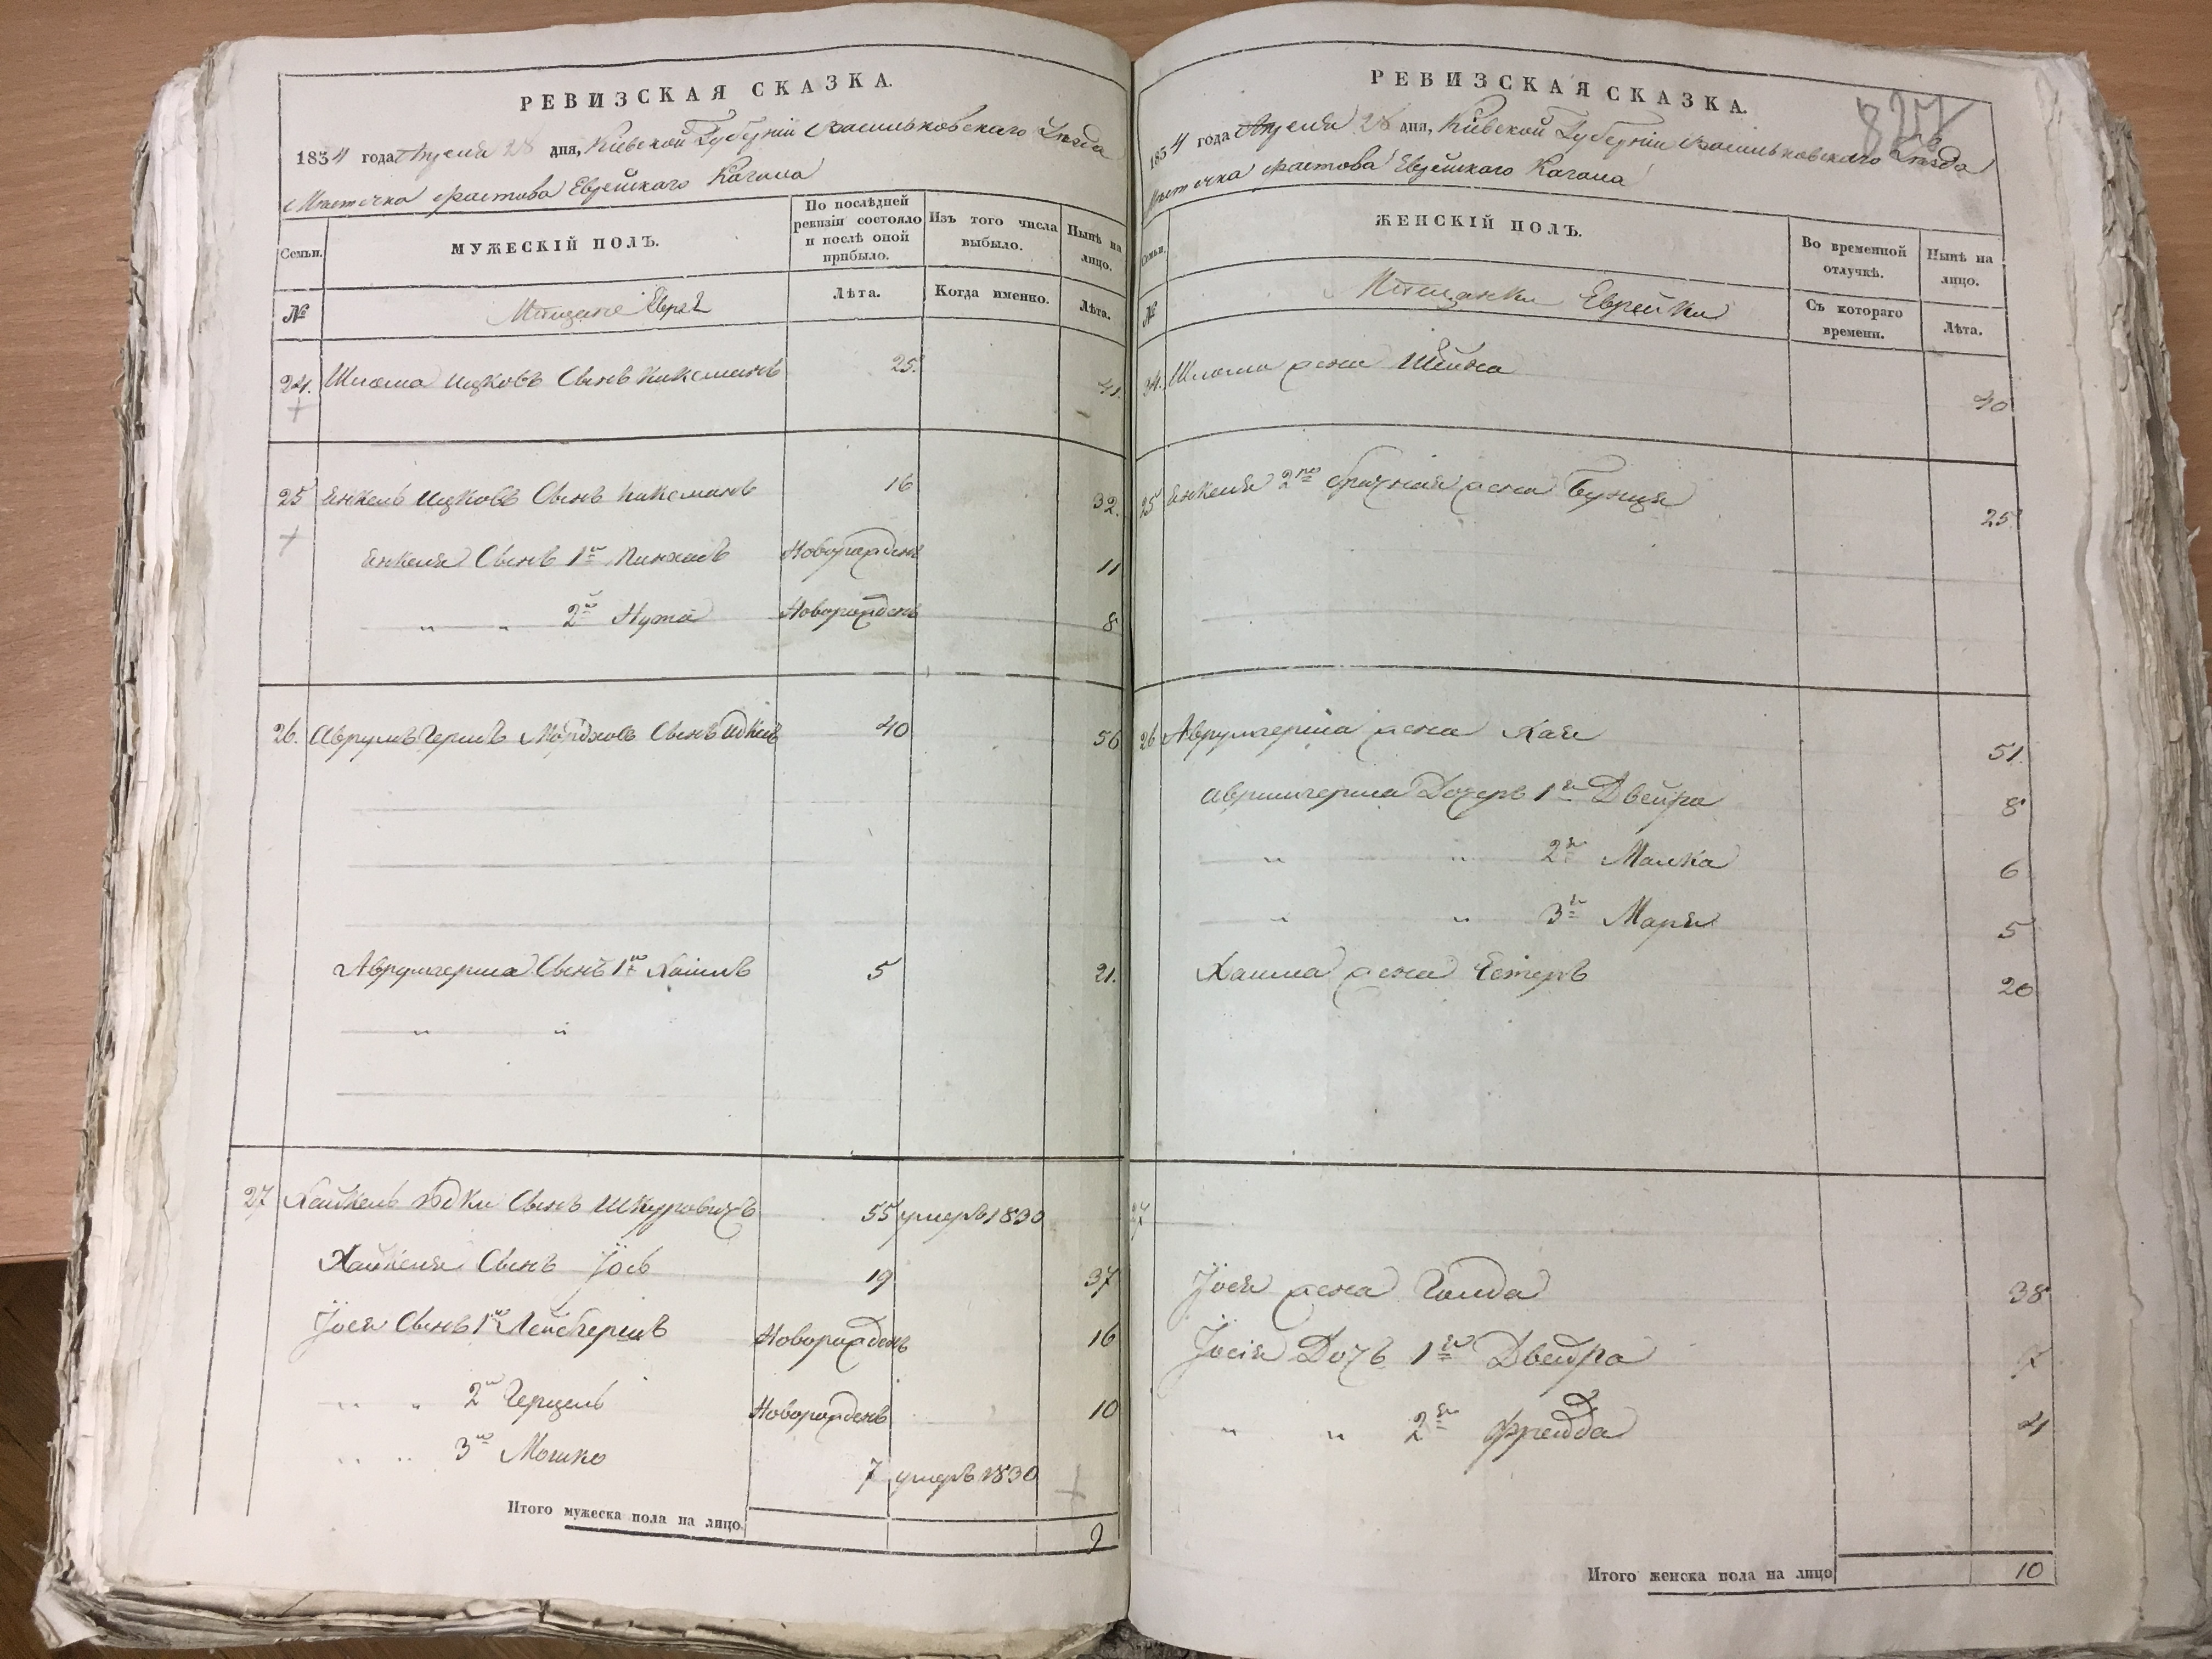 РЕВИЗСКАЯ СКАЗКА.
1834 года Апреля 28 дня, Кіевской Губерніи Васильковскаго Уезда
Местечка Фастова Еврейскаго Кагала
Семьи.
МУЖЕСКІЙ ПОЛЪ.
По послѣдней ревизіи состояло и послѣ оной прибыло.
Изъ того числа выбыло.
Нынѣ на лицо.
№
Мещане Евреи
Лѣта.
Когда именно.
Лѣта.
24. Шлома Ицковъ Сынъ 25 41.
25 Янкель Ицковъ Сынъ 16 32.
Янкеля Сынъ 1й Пинхасъ Новорожденъ 11
" " 2й Нута Новорожденъ 8
26. Аврумъ Гершъ Мордковъ Сынъ 40 56
Аврумгерша Сынъ 1й Хаимъ 5 21.
" "
27 Хайкель Сынъ Шкуровичъ 55 умеръ 1830
Хайкеля Сынъ Іось 19 37
Іося Сынъ 1й Лейбгершъ Новорожденъ 16
" " 2й Герцель Новорожденъ 10
" " 3й Мошко 7 умеръ 1830
Итого мужеска пола на лицо 9
827
РЕВИЗСКАЯ СКАЗКА.
1834 года Апреля 28 дня, Кіевской Губерніи Васильковскаго Уезда
Местечка Фастова Еврейскаго Кагала
Семьи.
ЖЕНСКІЙ ПОЛЪ.
Во временной отлучкѣ.
Нынѣ на лицо.
№
Мещанки Еврейки
Съ котораго времени.
Лѣта.
24. Шлома жена Шейна 40
25 Янкеля 2го брачная жена Бунця 25
26 Аврумгерша жена Хая 51.
Аврумгерша Дочерь 1я Двейра 8
" " 2я Малка 6
" " 3я Маря 5
Хаима жена Естеръ 20
27
Іося жена Голда 38
Іосія Дочь 1я Двейра 7
" " 2я Фрейда 4
Итого женска пола на лицо 10